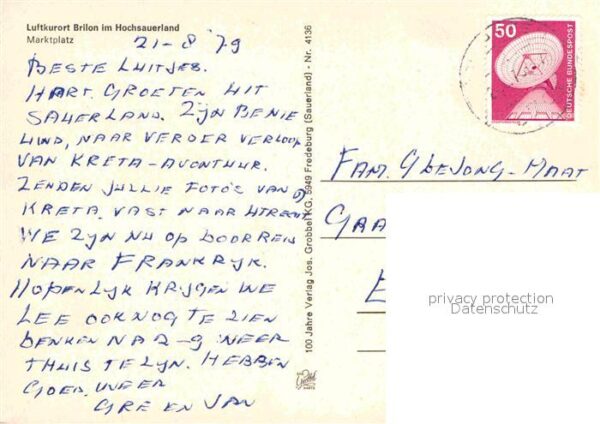 Luftkurort Brilon im Hochsauerland
Marktplatz
21-8 '79
BESTE LUITJES.
HART. GROETEN UIT
SAUERLAND. ZIJN BENIE
UWD, NAAR VERDER VERLOOP
VAN KRETA-AVONTUUR.
ZENDEN JULLIE FOTO'S VAN
KRETA. VAST NAAR UTRECHT
WE ZIJN NU OP DOORREIS
NAAR FRANKRIJK.
HOPENLIJK KRIJGEN WE
LEE OOK NOG TE ZIEN
DENKEN NA 2-9 WEER
THUIS TE ZIJN. HEBBEN
GOED WEER
GRE EN JAN
100 Jahre Verlag Jos. Grobbel KG, 5949 Fredeburg (Sauerland) - Nr. 4136
50
DEUTSCHE BUNDESPOST
FAM. G DE JONG-MAAT
GAA
E
privacy protection
Datenschutz